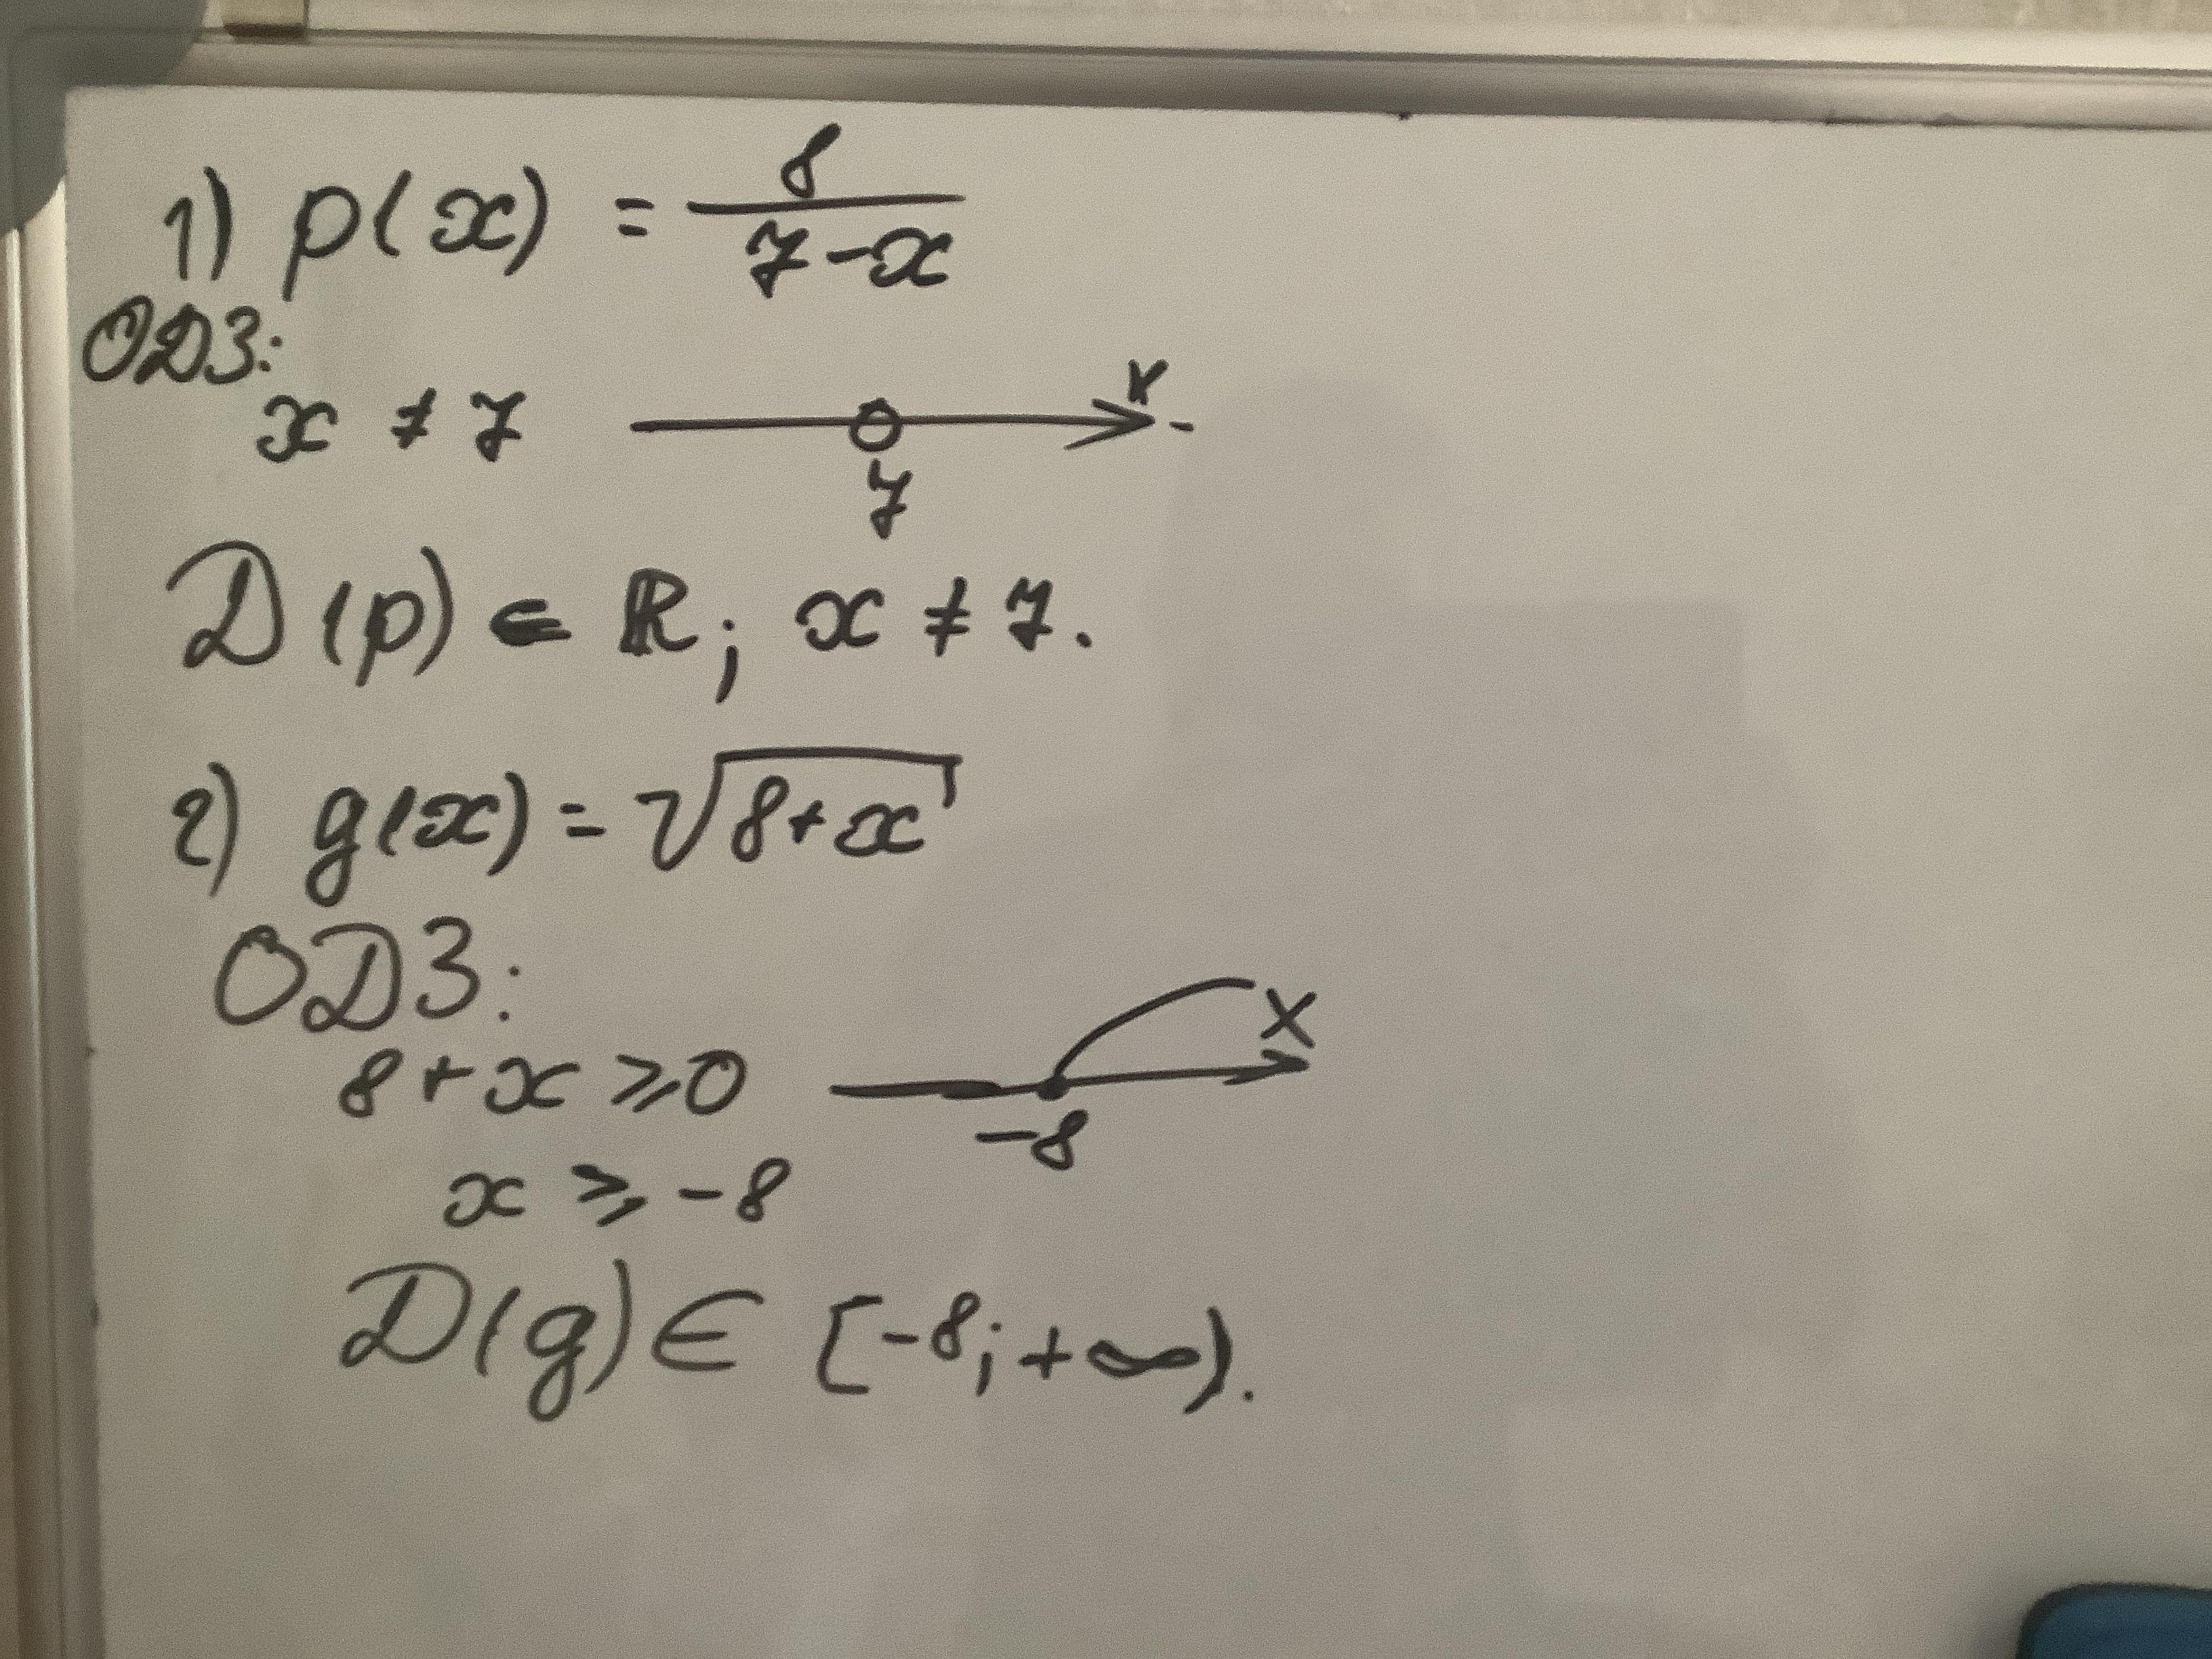 1) p(x) = 8/(7-x)
ОДЗ:
x ≠ 7
x
7
D(p) ∈ ℝ; x ≠ 7.
2) g(x) = √(8+x)
ОДЗ:
8+x ⩾ 0
x
-8
x ⩾ -8
D(g) ∈ [-8; +∞).